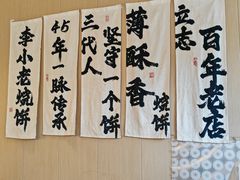 李小老烧饼
45年一脉传承
三代人
坚守一个饼
薄酥香
烧饼
立志
百年老店